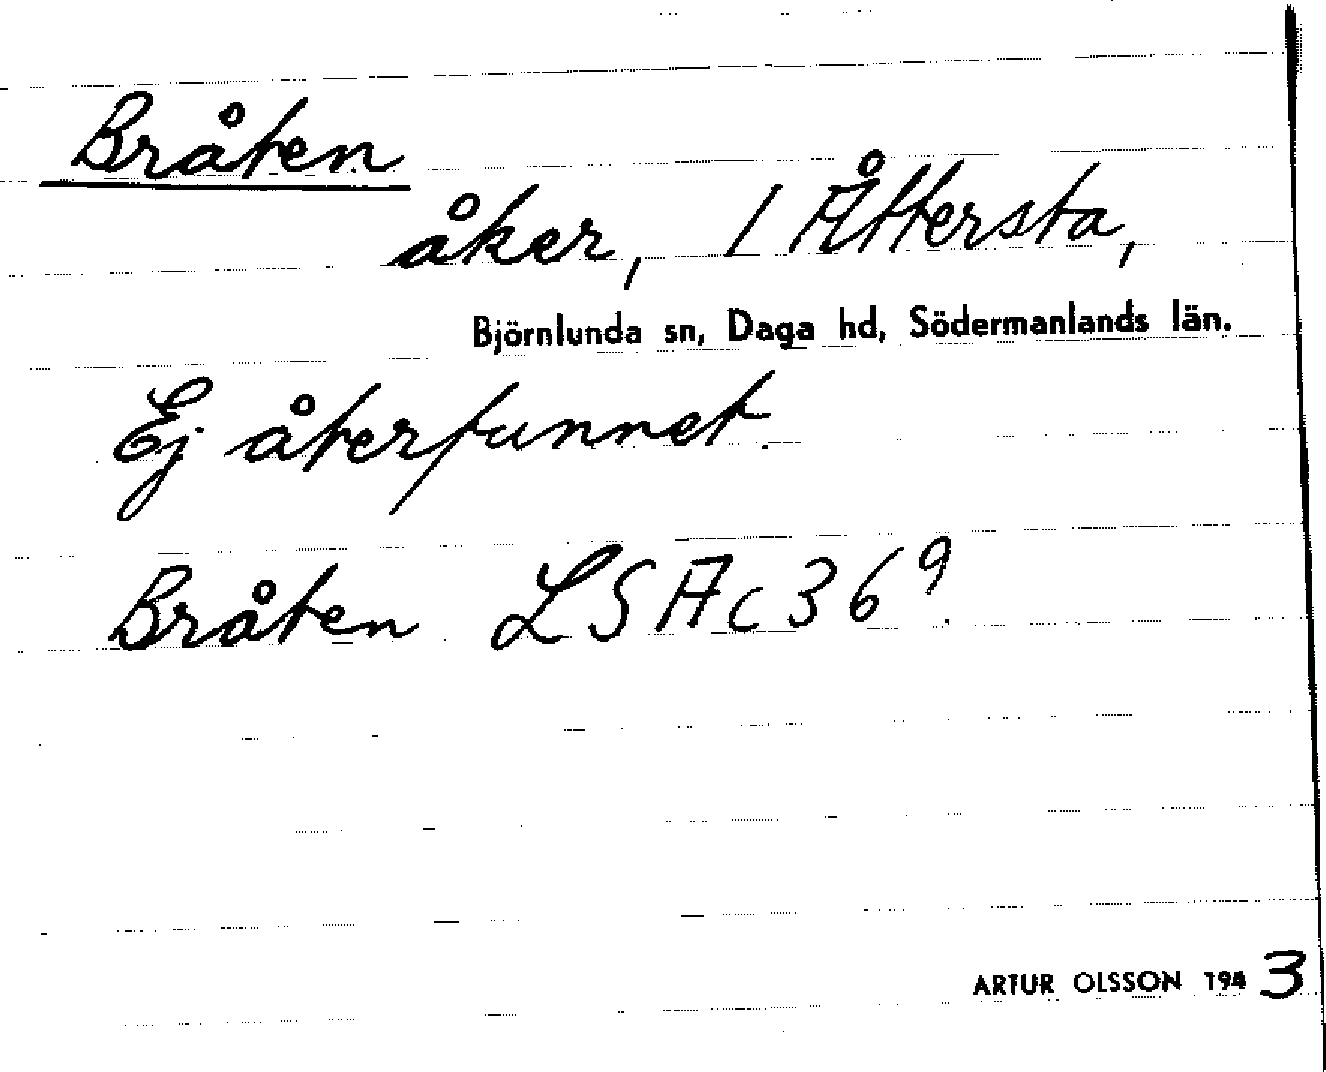 Bråten
åker, 1 Åttersta,
Björnlunda sn, Daga hd, Södermanlands län.
Ej återfunnet.
Bråten LSA c 36 9
ARTUR OLSSON 194 3